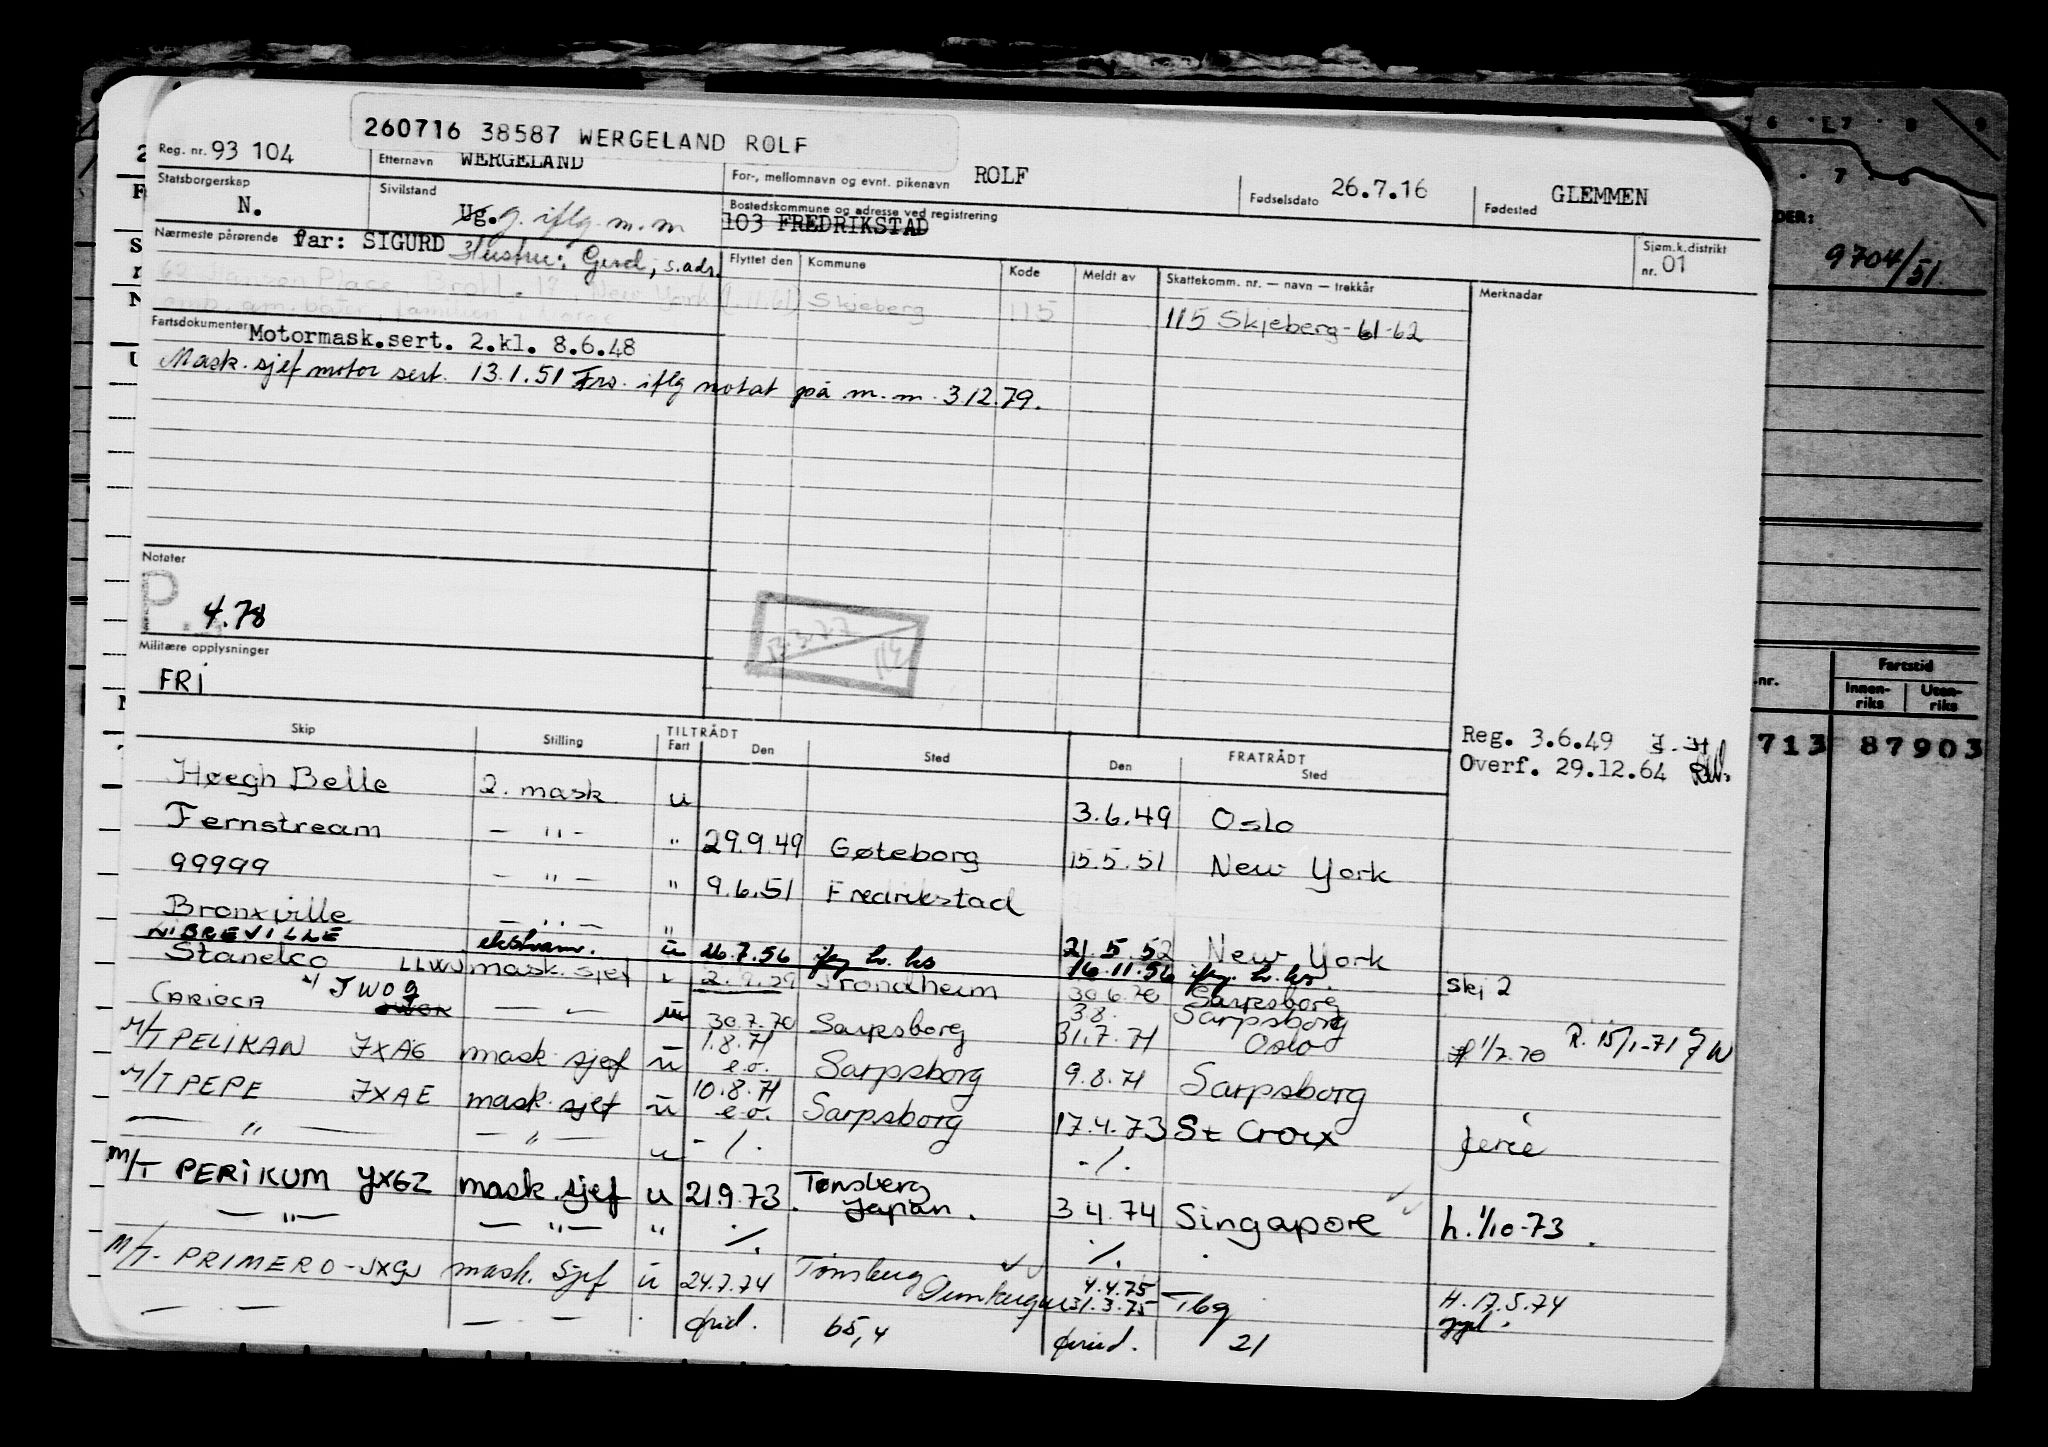 260716 38587 WERGELAND ROLF
Reg. nr. 93 104 Etternavn WERGELAND For-, mellomnavn og evnt. pikenavn ROLF Fødselsdato 26.7.16 Fødested GLEMMEN
Statsborgerskap N. Sivilstand Ug. g. iflg. m.m Bostedskommune og adresse ved registrering 103 FREDRIKSTAD
Nærmeste pårørende far: SIGURD Hustru: Gerd, s.adr. Flyttet den Kommune Kode Meldt av Skattekomm. nr. — navn — trekkår Sjøm.k.distrikt nr. 01
Merknader
Skjeberg 115 115 Skjeberg-61-62
Fartsdokumenter Motormask.sert. 2.kl. 8.6.48
Mask. sjef motor sert. 13.1.51 Frs. iflg notat på m.m. 312.79.
Notater
P
4.78
13.3.77
Militære opplysninger
FRi
Reg. 3.6.49
Overf. 29.12.64
Skip Stilling TILTRÅDT Fart Den Sted Den FRATRÅDT Sted
Høegh Belle 2. mask. u 3.6.49 Oslo
Fernstream — " — " 29.9.49 Gøteborg 15.5.51 New York
99999 — " — " 9.6.51 Fredrikstad
Bronxville — " — " 21.5.52 New York
LIBREVILLE ekstram. u 26.7.56 16.11.56
Stanelco LLWJ mask. sjef u Trondheim 30.6.70 Sarpsborg Skj 2
CARIOCA JWOG — " — u 30.7.70 Sarpsborg 38. Sarpsborg
M/T PELIKAN JXAG mask sjef u 1.8.71 e.o. Sarpsborg 31.7.71 Oslo 1/7.70 R. 15/1-71
9.8.71 Sarpsborg
M/T PEPE JXAE mask. sjef u 10.8.71 e.o. Sarpsborg 17.4.73 St Croix ferie
— " — — " — u -/. -/.
M/T PERIKUM JXGZ mask. sjef u 21.9.73. Tønsberg Japan. 3 4.74 Singapore h. 1/10-73.
— " — — " — " ./. ./.
M/T- PRIMERO-JXGJ mask. Sjef u 24.7.74 Tønsberg 4.4.75 31.3.75 Tbg H. 17.5.74
— — — — . 65,4 21
DER:
9704/51.
nr. Fartstid
Innen-riks Uten-riks
713 87903